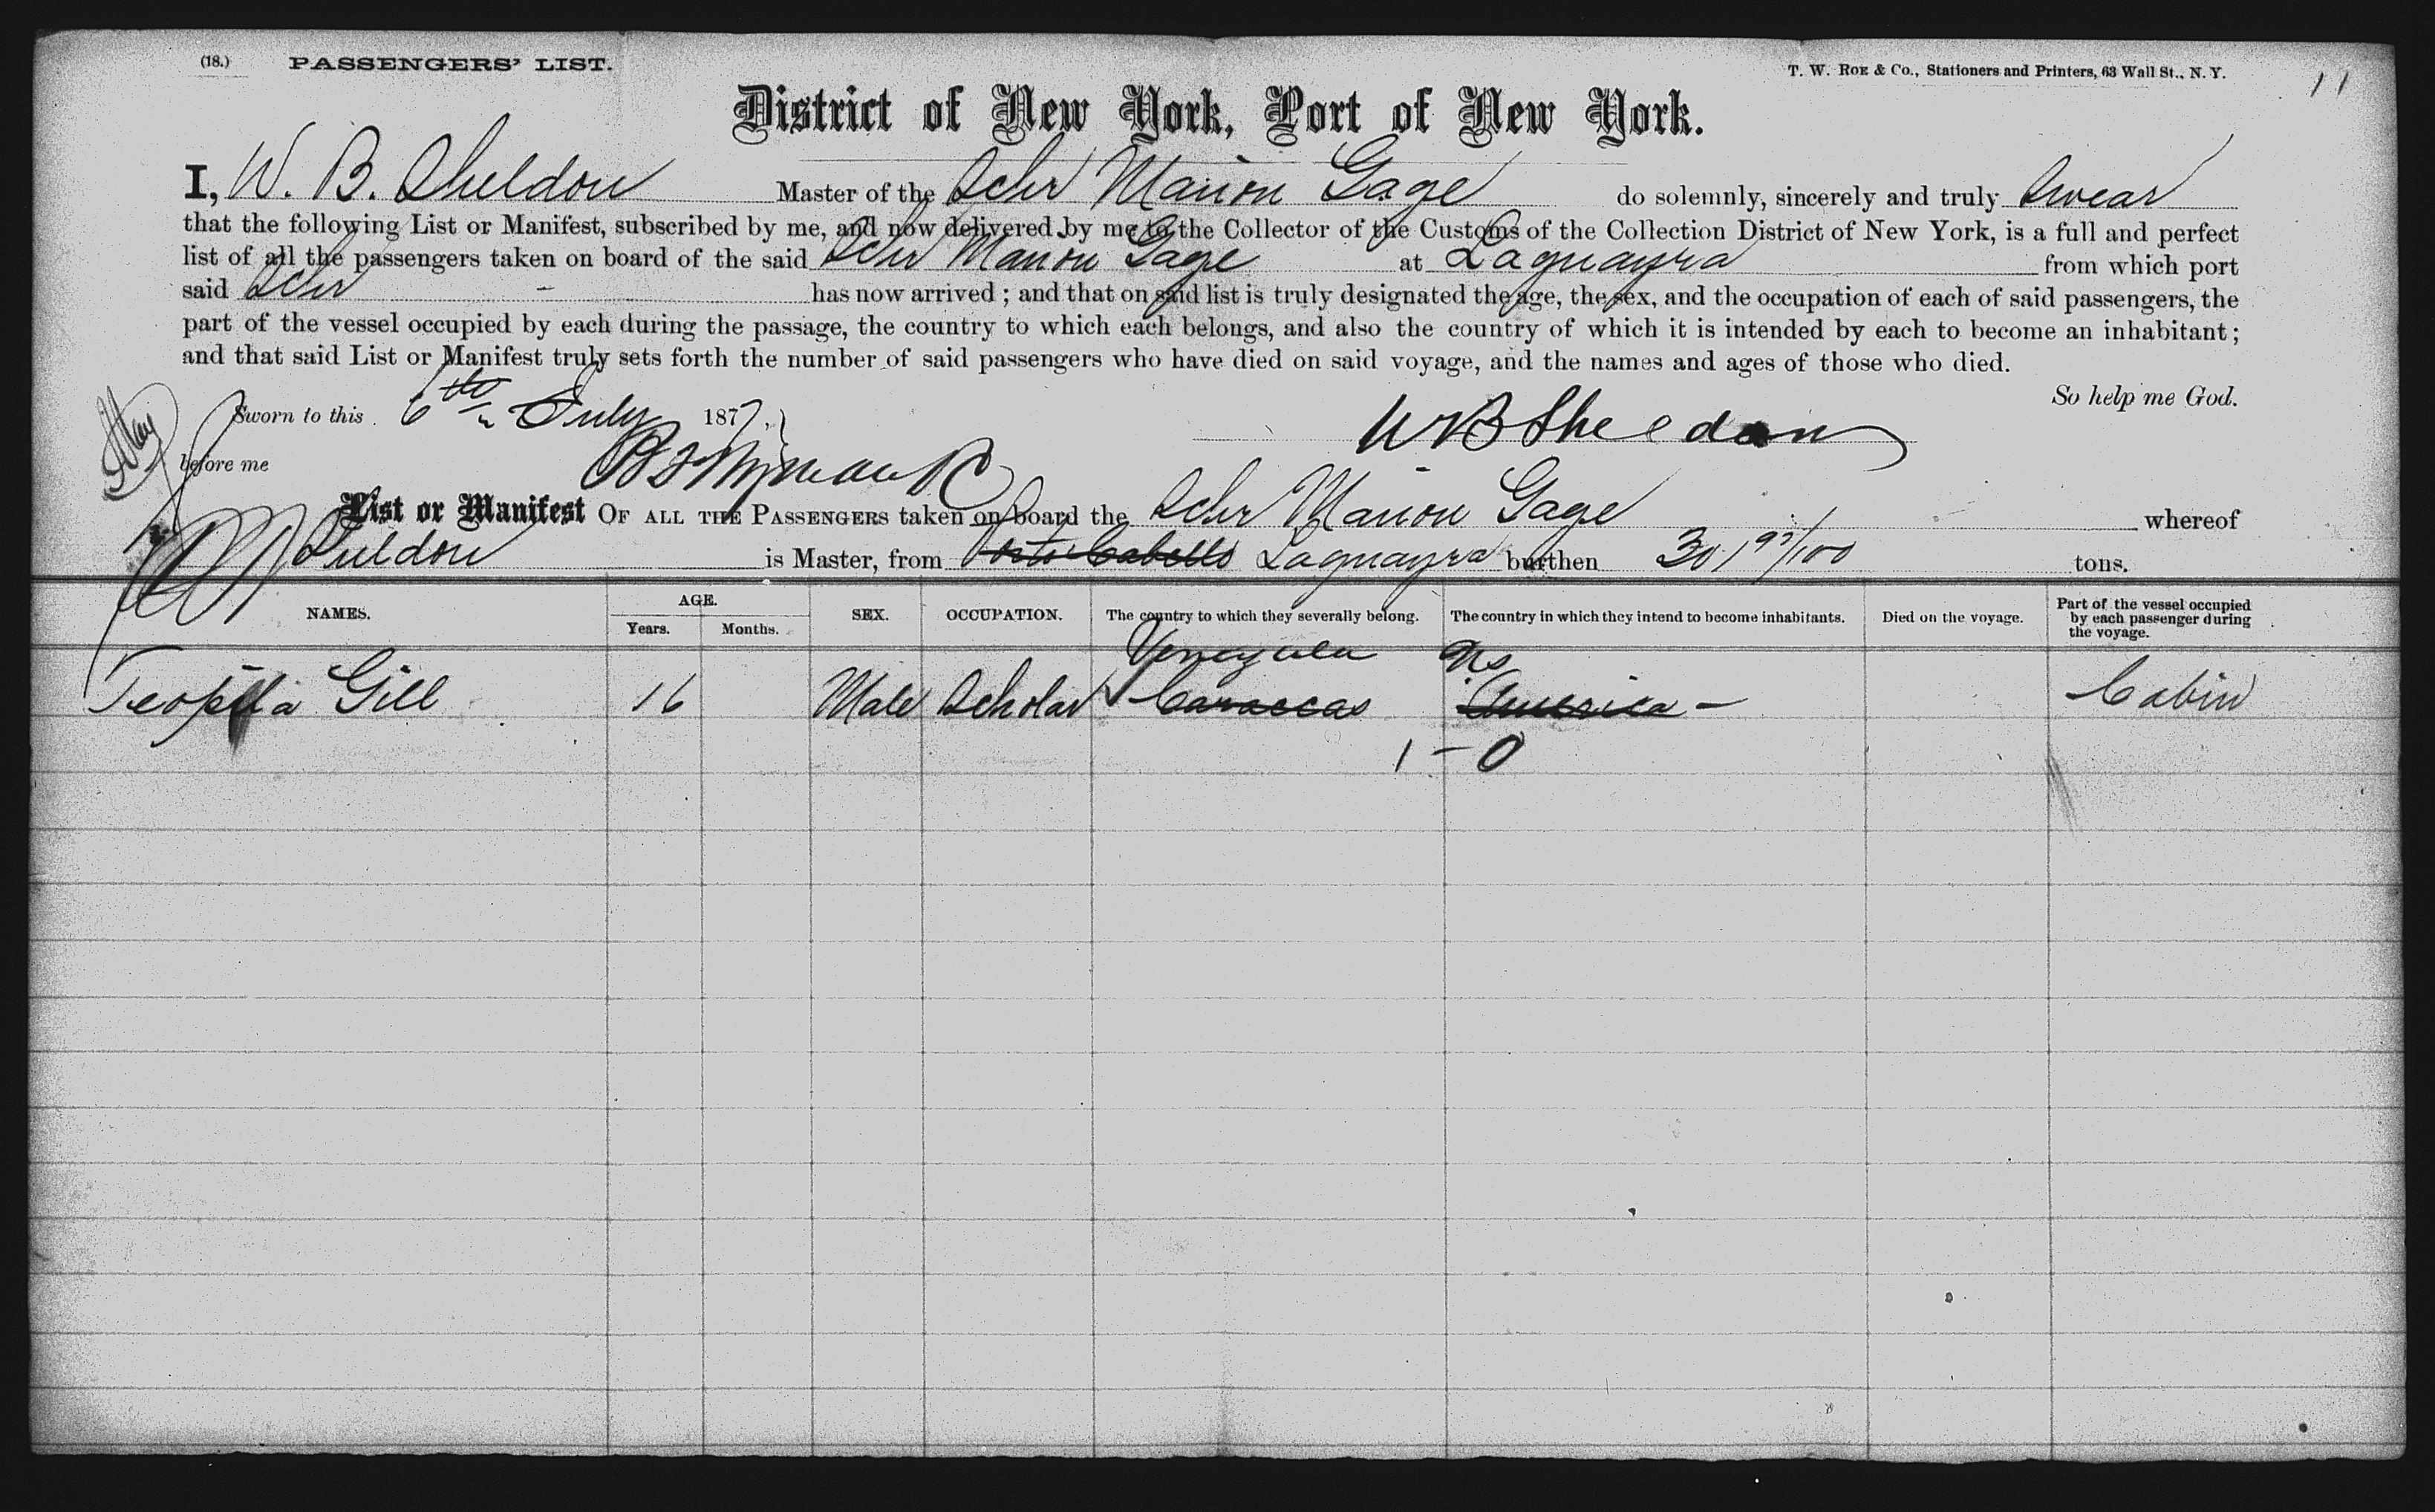 (18.) PASSENGERS' LIST.
T. W. ROE & Co., Stationers and Printers, 63 Wall St., N. Y.
11
District of New York, Port of New York.
I, W. B. Sheldon Master of the Schr Marion Gage do solemnly, sincerely and truly Swear
that the following List or Manifest, subscribed by me, and now delivered by me to the Collector of the Customs of the Collection District of New York, is a full and perfect
list of all the passengers taken on board of the said Schr Marion Gage at Laguayra from which port
said Schr - has now arrived; and that on said list is truly designated the age, the sex, and the occupation of each of said passengers, the
part of the vessel occupied by each during the passage, the country to which each belongs, and also the country of which it is intended by each to become an inhabitant;
and that said List or Manifest truly sets forth the number of said passengers who have died on said voyage, and the names and ages of those who died.
So help me God.
Sworn to this 6th July 1877
W B Sheldon
before me
List or Manifest OF ALL THE PASSENGERS taken on board the Schr Marion Gage whereof
Sheldon is Master, from Porto Cabello Laguayra burthen 301 97/100 tons.
NAMES. AGE. Years. Months. SEX. OCCUPATION. The country to which they severally belong. The country in which they intend to become inhabitants. Died on the voyage. Part of the vessel occupied by each passenger during the voyage.
Venezuela
Gill 16 Male Scholar Caraccas America - Cabin
1 - 0